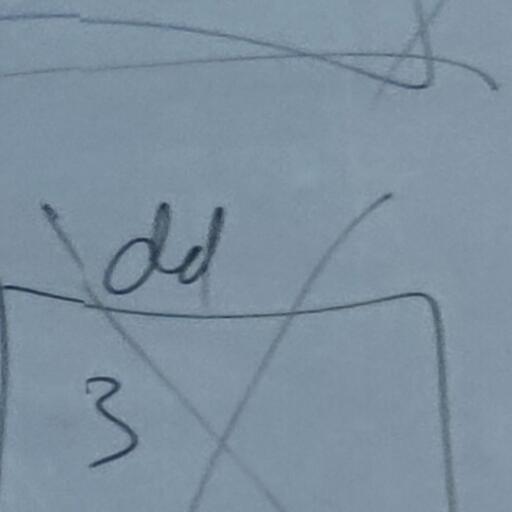 dd
3